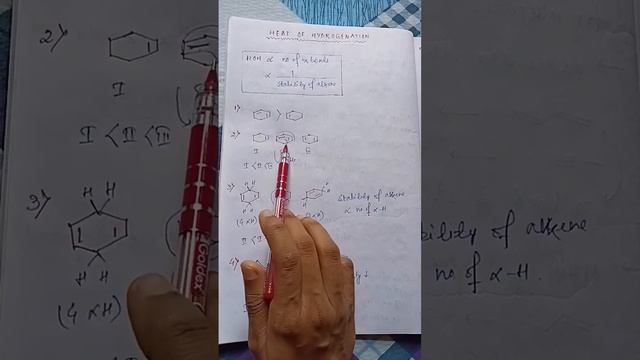 HEAT OF HYDROGENATION
HOH ∝ no of π bonds
∝ 1 / stability of alkene
1)
>
2)
I
I < II < III
3)
(4 αH)
stability of alkene
∝ no of α-H
4)
2)
I
I < II < III
3)
H H
H H
(4 αH)
bility of alkene
no of α-H.
Goldex